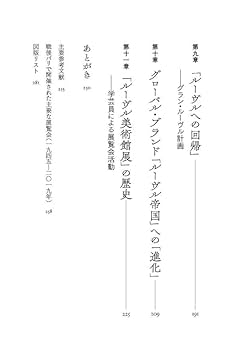 第九章 「ルーヴルへの回帰」 191
――グラン・ルーヴル計画
第十章 グローバル・ブランド「ルーヴル帝国」への「進化」 209
第十一章 「ルーヴル美術館展」の歴史 225
――学芸員による展覧会活動
あとがき 250
主要参考文献 255
戦後パリで開催された主要な展覧会(一九四五―二〇一九年) 258
図版リスト 261